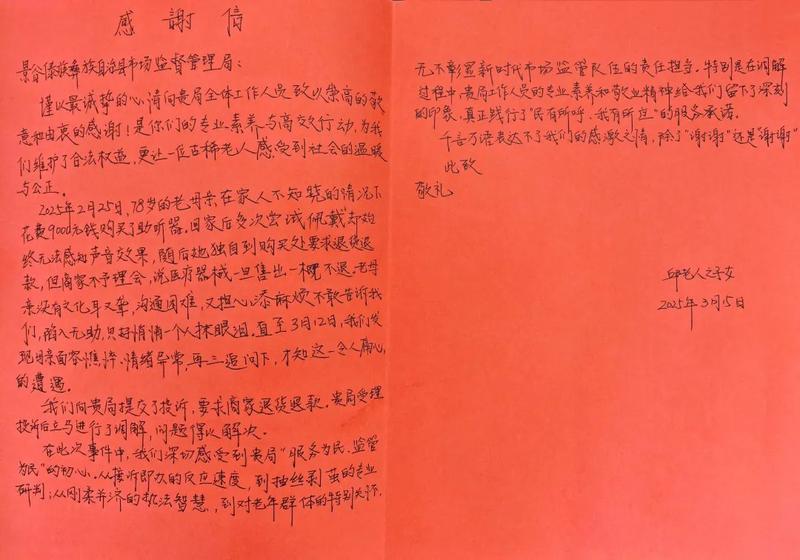 感謝信
景谷傣族彝族自治县市场监督管理局：
谨以最诚挚的心，请向贵局全体工作人员致以崇高的敬
意和由衷的感谢！是你们的专业素养与高效行动，为我
们维护了合法权益，更让一位古稀老人感受到社会的温暖
与公正。
2025年2月25日，78岁的老母亲在家人不知晓的情况下
花费9000元钱购买了助听器。回家后多次尝试佩戴却始
终无法感知声音效果，随后她独自到购买处要求退货退
款，但商家不予理会，说医疗器械一旦售出一概不退。老母
亲没有文化耳又聋，沟通困难，又担心添麻烦不敢告诉我
们，陷入无助，只好悄悄一个人抹眼泪。直至3月12日，我们发
现母亲面容憔悴、情绪异常，再三追问下，才知这一令人痛心
的遭遇。
我们向贵局提交了投诉，要求商家退货退款。贵局受理
投诉后立马进行了调解，问题得以解决。
在此次事件中，我们深切感受到贵局“服务为民、监管
为民”的初心。从接诉即办的反应速度，到抽丝剥茧的专业
研判；从刚柔并济的执法智慧，到对老年群体的特别关怀，
无不彰显新时代市场监管队伍的责任担当。特别是在调解
过程中贵局工作人员的专业素养和敬业精神给我们留下了深刻
的印象，真正践行了“民有所呼，我有所应”的服务承诺。
千言万语表达不了我们的感激之情，除了“谢谢”还是“谢谢”
此致
敬礼
邱老人之子女
2025年3月15日